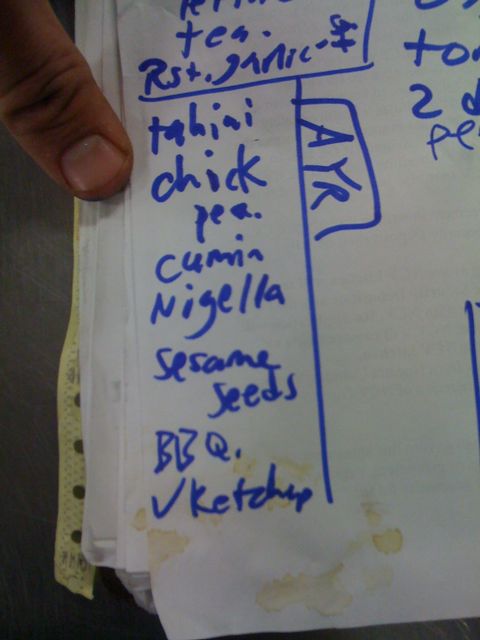 tea.
Rst. garlic
tahini
chick
pea.
cumin
Nigella
sesame
seeds
BBQ.
✓Ketchup
AYR
2